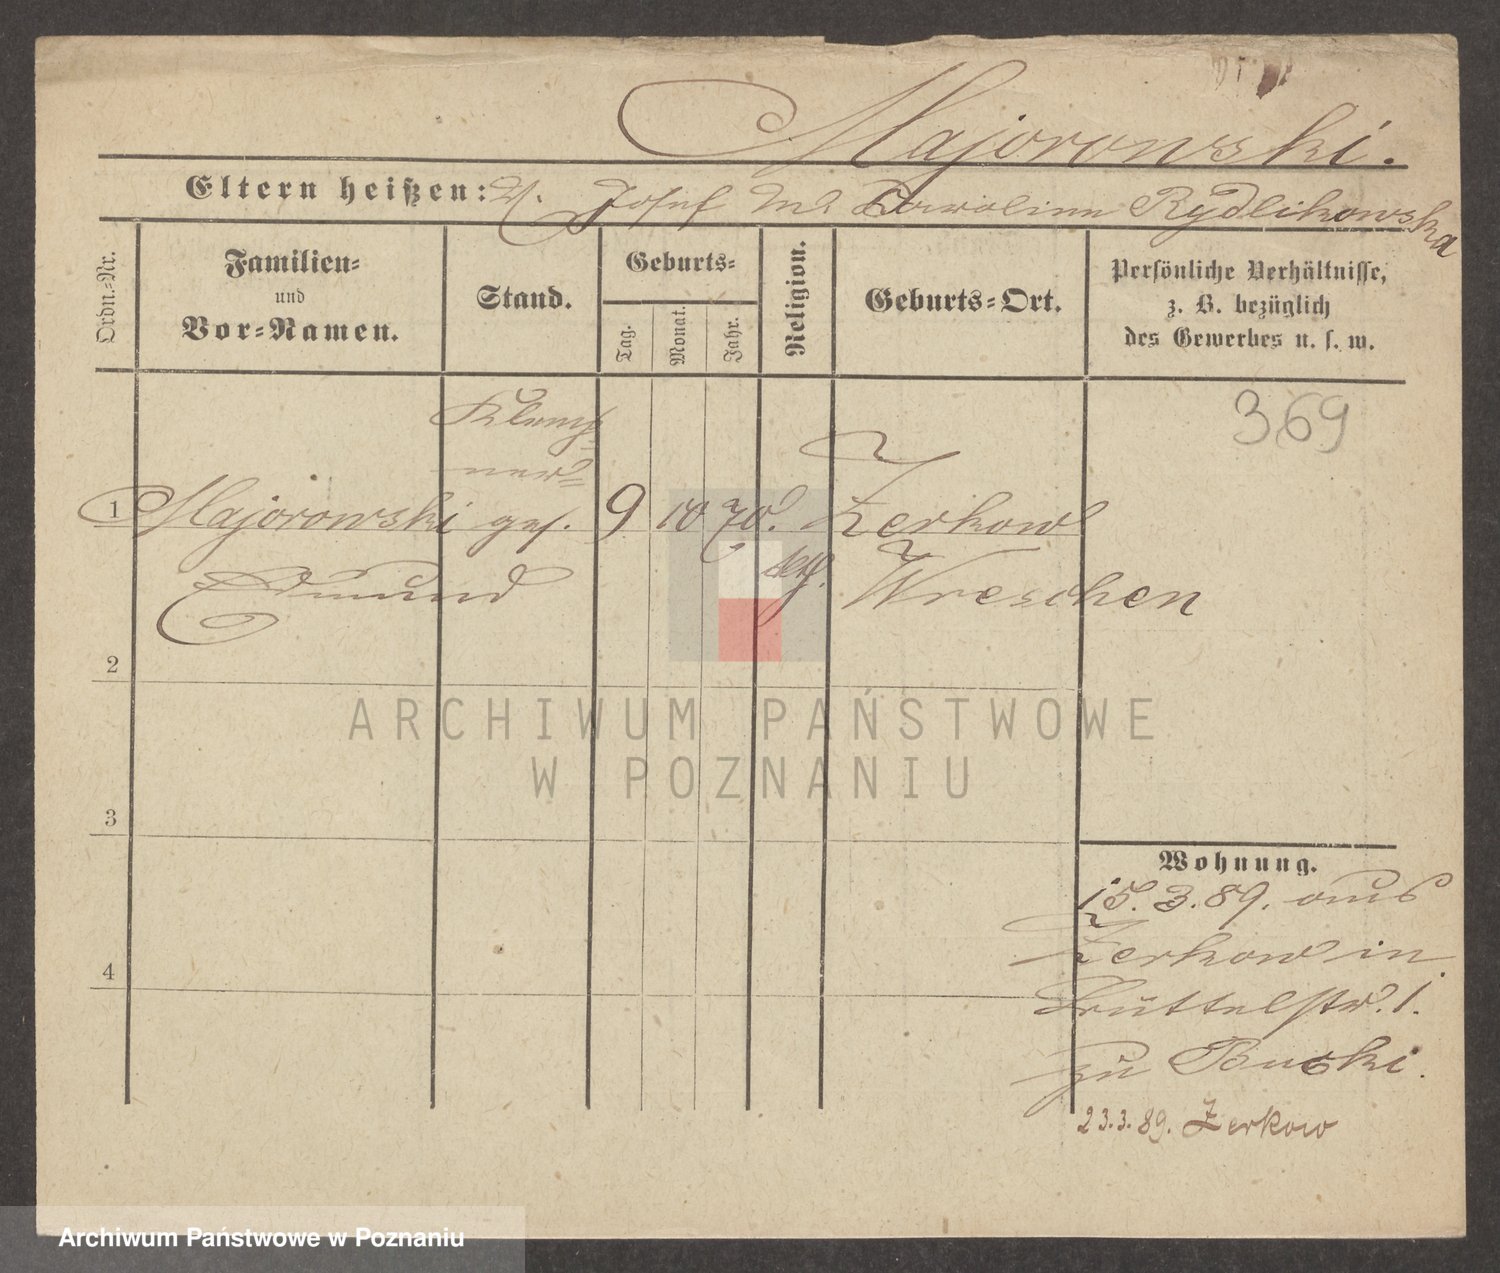 Majorowski.
Eltern heißen: V. Josef M. Karoline Rydlikowska
Ordn.-Nr.
Familien-
und
Vor-Namen.
Stand.
Geburts-
Tag.
Monat.
Jahr.
Religion.
Geburts-Ort.
Persönliche Verhältnisse,
z. B. bezüglich
des Gewerbes u. s. w.
369
Klemp-
ner-
1 Majorowski ges. 9 10 70. Zerkow
Edmund kth. Wreschen
2
3
4
ARCHIWUM PAŃSTWOWE
W POZNANIU
Wohnung.
15.3.89. aus
Zerkow in
1.
zu Buski.
23.3.89. Zerkow
Archiwum Państwowe w Poznaniu